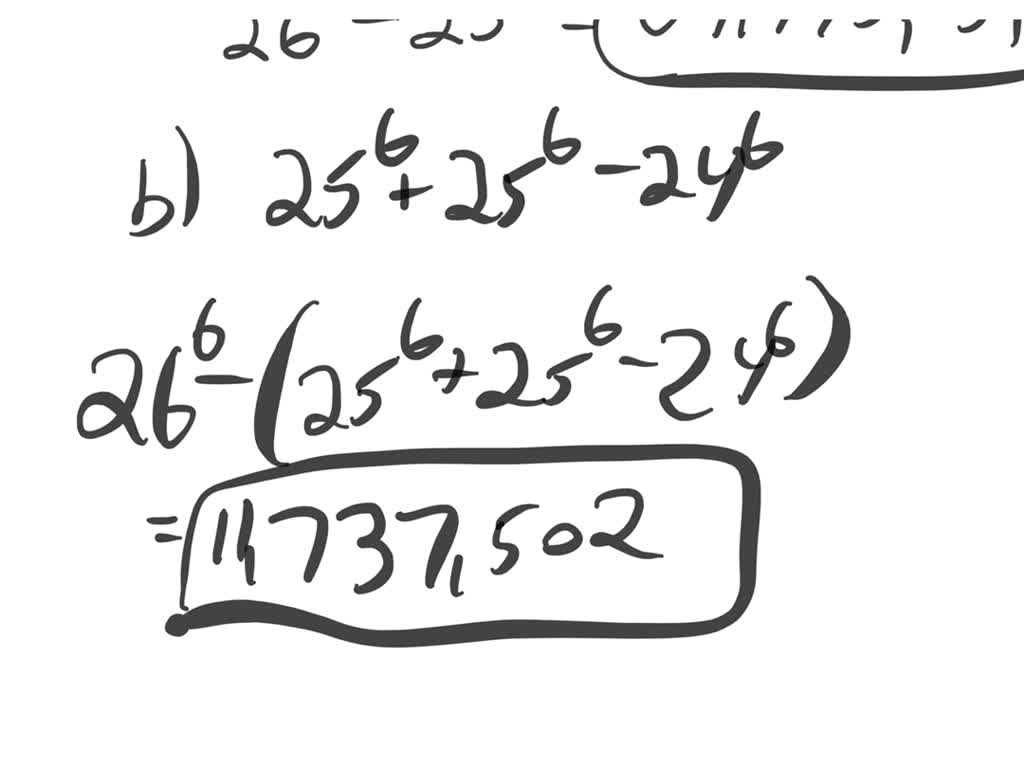 b) 25⁶+25⁶-24⁶
26⁶-(25⁶+25⁶-24⁶)
=11,737,502